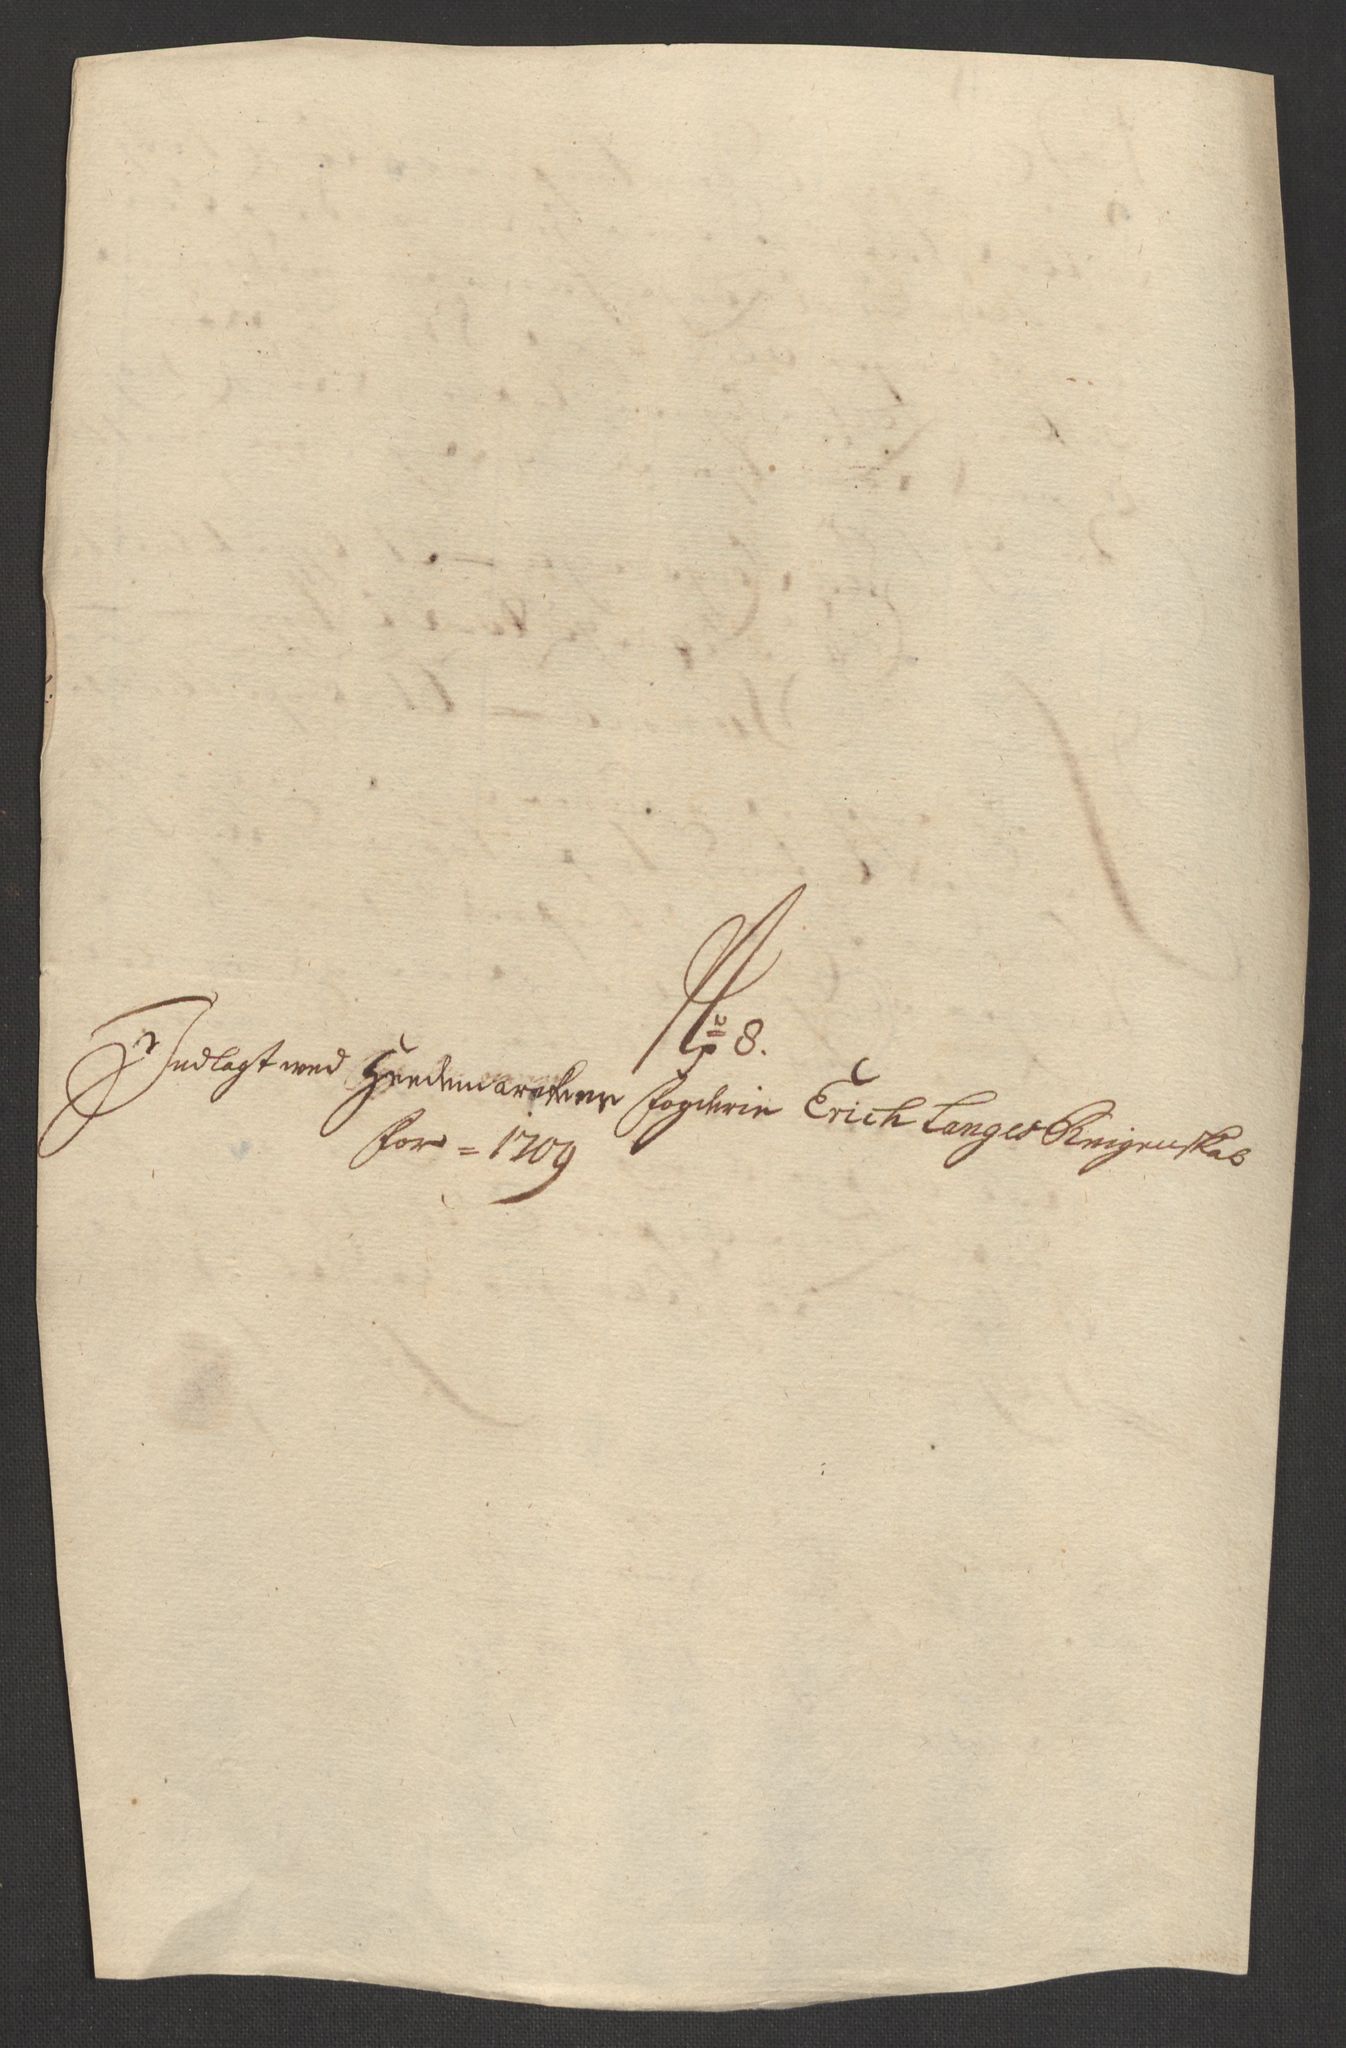 No 8.
Indlagt wed Heedemarchens fogderie Erich Langes Reigenskab
for = 1709